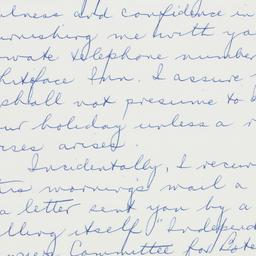 ulness and confidence in
urnishing me with yo
vate telephone number
hiteface Inn. I assure
shall not presume to
ur holiday unless a r
ises arises.
Incidentally, I receiv
this morning's mail a
a letter sent you by a
lling itself "Independ
Committee for Pote